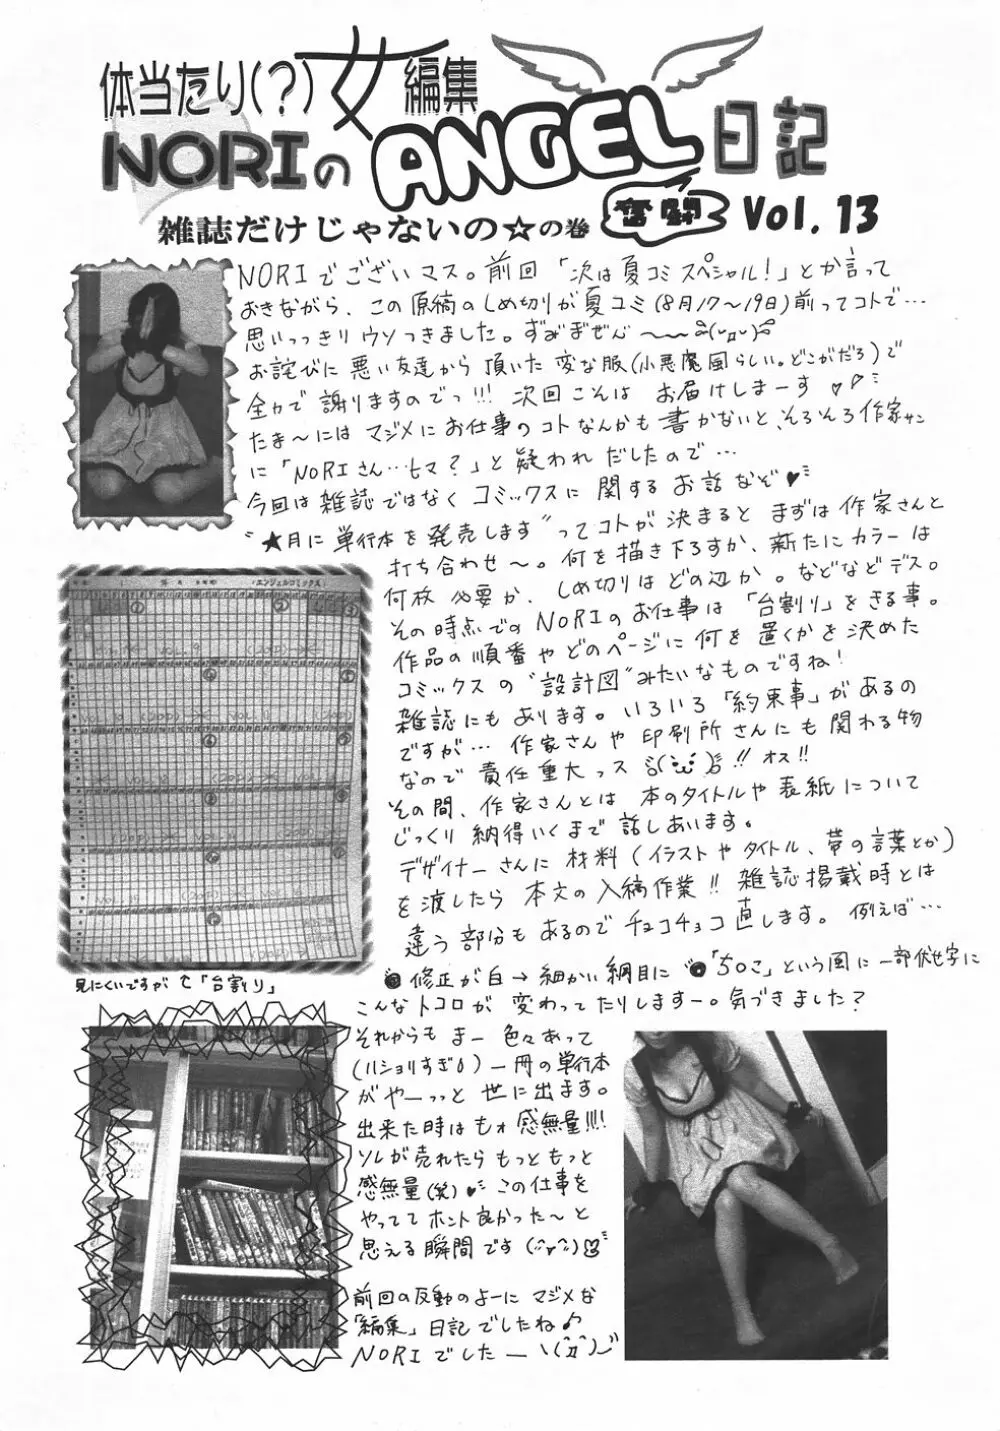 体当たり(?)女編集
NORIのANGEL日記
奮闘
Vol.13
雑誌だけじゃないの☆の巻
NORIでございマス。前回「次は夏コミスペシャル!」とか言って
おきながら、この原稿のしめ切りが夏コミ(8月17〜19日)前ってコトで…
思いっっきりウソつきました。ずみまぜん〜〜
お詫びに悪い友達から頂いた変な服(小悪魔風らしい。どこがだろ)で
全力で謝りますのでっ!!! 次回こそは お届けしまーす♥
たま〜にはマジメにお仕事のコトなんかも書かないと、そろそろ作家サン
に「NORIさん…ヒマ?」と疑われだしたので…
今回は雑誌ではなくコミックスに関するお話なぞ♥
"★月に単行本を発売します"ってコトが決まるとまずは作家さんと
打ち合わせ〜。何を描き下ろすか、新たにカラーは
何枚必要か、しめ切りはどの辺か。などなどデス。
その時点でのNORIのお仕事は「台割り」をきる事。
作品の順番やどのページに何を置くかを決めた
コミックスの"設計図"みたいなものですね!
雑誌にもあります。いろいろ「約束事」があるの
ですが…作家さんや印刷所さんにも関わる物
なので責任重大っス!! オス!!
その間、作家さんとは本のタイトルや表紙について
じっくり納得いくまで話しあいます。
デザイナーさんに材料(イラストやタイトル、帯の言葉とか)
を渡したら本文の入稿作業!! 雑誌掲載時とは
違う部分もあるのでチョコチョコ直します。例えば…
●修正が白→細かい網目に ●「ち○こ」という風に一部伏せ字に
こんなトコロが変わってたりしますー。気づきました?
それからもまー色々あって
(ハショりすぎ)一冊の単行本
がやーっっと世に出ます。
出来た時はもォ感無量!!!!
ソレが売れたらもっともっと
感無量(笑)♥この仕事を
やっててホント良かった〜と
思える瞬間です
前回の反動のよーにマジメな
「編集」日記でしたね♪
NORIでしたー
(エンジェルコミックス)
見にくいですが↑「台割り」